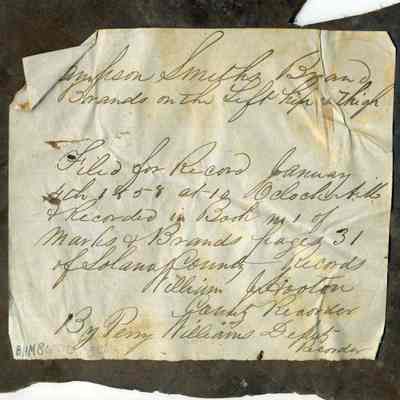 Sampson Smiths Brand
Brands on the Left hip & Thigh
Filed for Record January
4th 1858 at 10 Oclock A.M.
& Recorded in Book No 1 of
Marks & Brands pages 31
of Solano County Records
William
County Recorder
By Perry Williams Deputy
Recorder